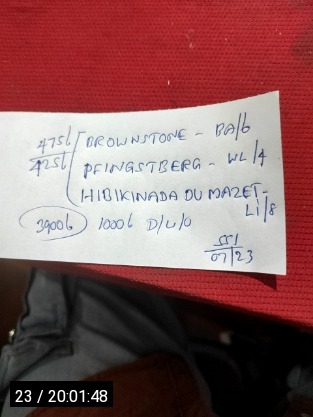 475b BROWNSTONE - BA/6
425b PFINGSTBERG - WL/4
HIBIKINADA DU MAZET - LI/8
3900b 1000b D/L/O
551
07/23
23 / 20:01:48